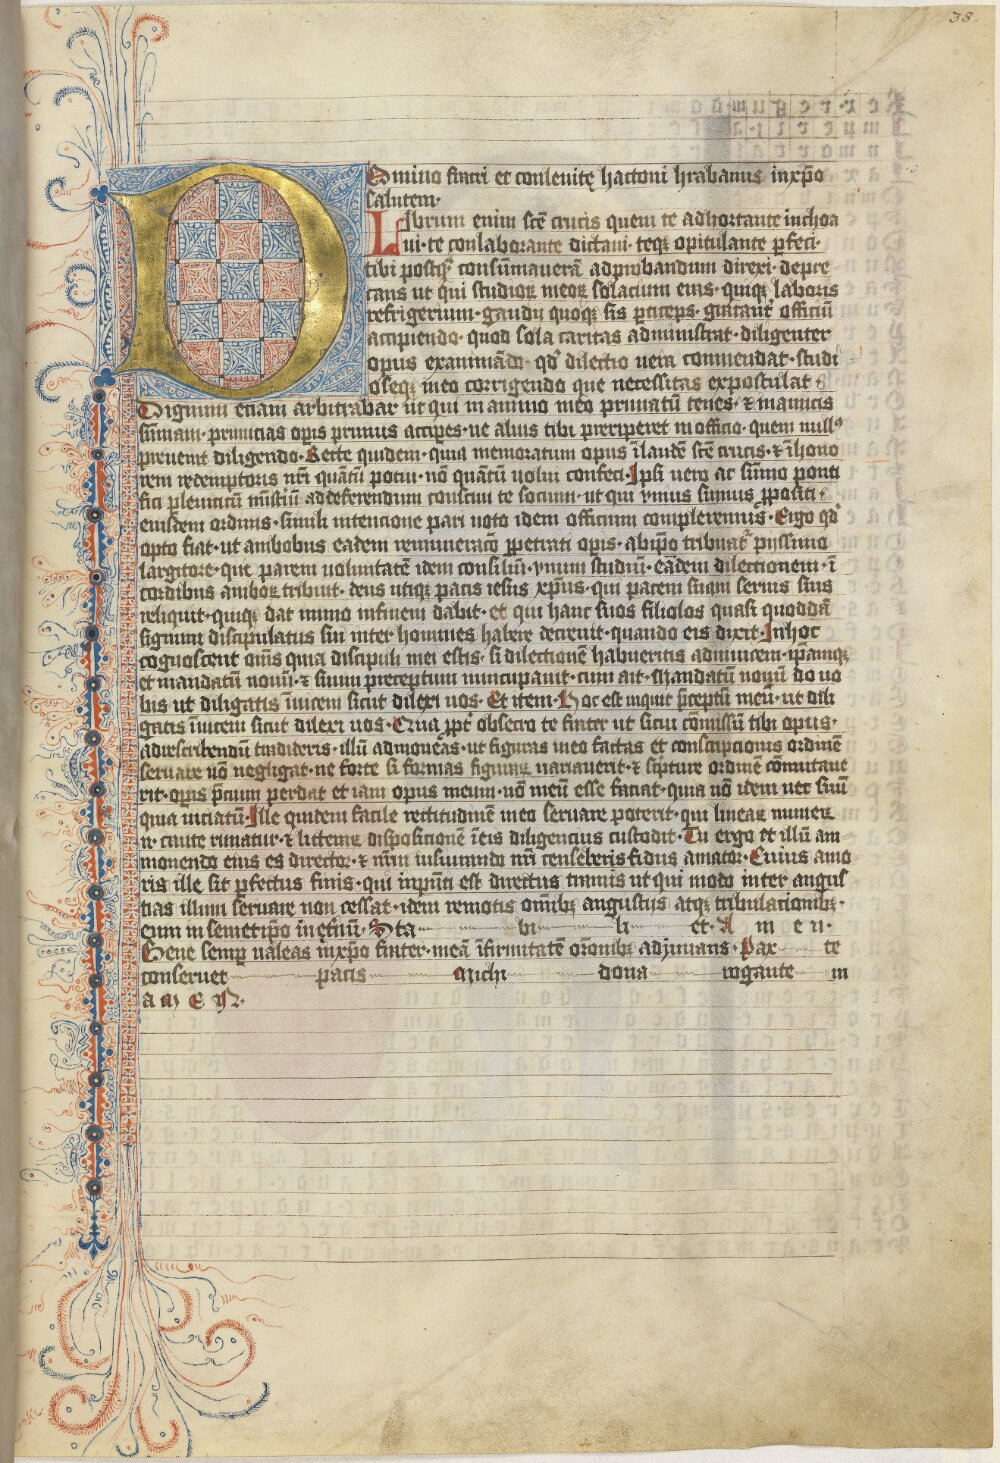 38.
Domino fratri et conlevite hattoni hrabanus in xp̄o
salutem·
Librum enim sc̄e crucis quem te adhortante inchoa
ui· te conlaborante dictaui· teqꝫ opitulante ꝑfeci·
tibi postqͣ consūmauerā ad probandum direxi· depre
cans ut qui studioꝝ meoꝝ solacium eius· quiqꝫ laboris
refrigerium· gaudii quoqꝫ sis ꝑticeps· gratant̄ officiū
accipiendo· quod sola caritas administrat· diligenter
opus examinādo· qd̄ dilectio vera commendat· studi
oseqꝫ meo corrigendo que necessitas expostulat
Dignum etiam arbitrabar ut qui in animo meo primatū tenes· ⁊ in amicis
sūmam· primicias opis primus accipes· ne alius tibi preriperet in officio· quem null⁹
preuenit diligendo· Recte quidem· quia memoratum opus ī laudē sc̄e crucis· ⁊ ī hono
rem redemptoris nr̄i quātū potui· nō quātū uolui confeci· Ipsi uero ac sūmo ponti
fici
eiusdem ordinis· simili intencione pari uoto idem officium compleremus· Ergo qd̄
opto fiat· ut ambobus eadem remuneracō ꝑpetrati opis· ab ip̄o tribuat̄ piissimo
largitore· qui parem uoluntatē idem consiliū· vnum studiū· eādem dilectionem· ī
cordibus amboꝝ tribuit· deus utiqꝫ pacis iesus xp̄us· qui pacem suam seruis suis
reliquit· quiqꝫ dat immo in finem dabit· et qui hanc suos filiolos quasi quoddā
signum discipulatus sui inter homines habere decreuit· quando eis dixit· In hoc
cognoscent om̄s quia discipuli mei estis· si dilectionē habueritis adinuicem· ip̄amqꝫ
et mandatū nouū· ⁊ suum preceptum nuncupauit· cum ait· Mandatū nouū do uo
bis ut diligatis īuicem sicut dilexi uos· Et item· Hoc est inquit p̄ceptū meū· ut dili
gatis īuicem sicut dilexi uos· Qua ꝓpt̄ obsecro te frater ut sicui cōmissū tibi opus·
ad rescribendū tradideris· illū admoneas· ut figuras meo factas et conscripcionis ordinē
seruare nō negligat· ne forte si formas figuraꝝ uariauerit· ⁊ sc̄pture ordinē cōmutaue
rit· opis p̄cium perdat et iam opus meum· nō meū esse faciat· quia nō idem uer suū
quia uiciatū· Ille quidem facile rectitudinē meo seruare poterit· qui lineaꝝ numeꝝ
n· caute rimatur· ⁊ litteraꝝ disposicionē ī eis diligencius custodit· Tu ergo te illū am
monendo eius es director· ⁊ nr̄m iusiurando nr̄i censeberis fidus amator· Cuius amo
ris ille sit ꝑfectus finis· qui inp̄nti est directus tramis ut qui modo inter angus
tias illum seruare non cessat· idem remotis om̄ibꝫ angustiis atqꝫ tribulacionibꝫ·
eum in semetip̄o in et̄nū· Sta bi li et· A m e n·
Bene semꝑ ualeas in xp̄o frater· meā īfirmitatē orōnibꝫ adiuuans· Pax te
conseruet pacis michi dona rogante in
a m e n·